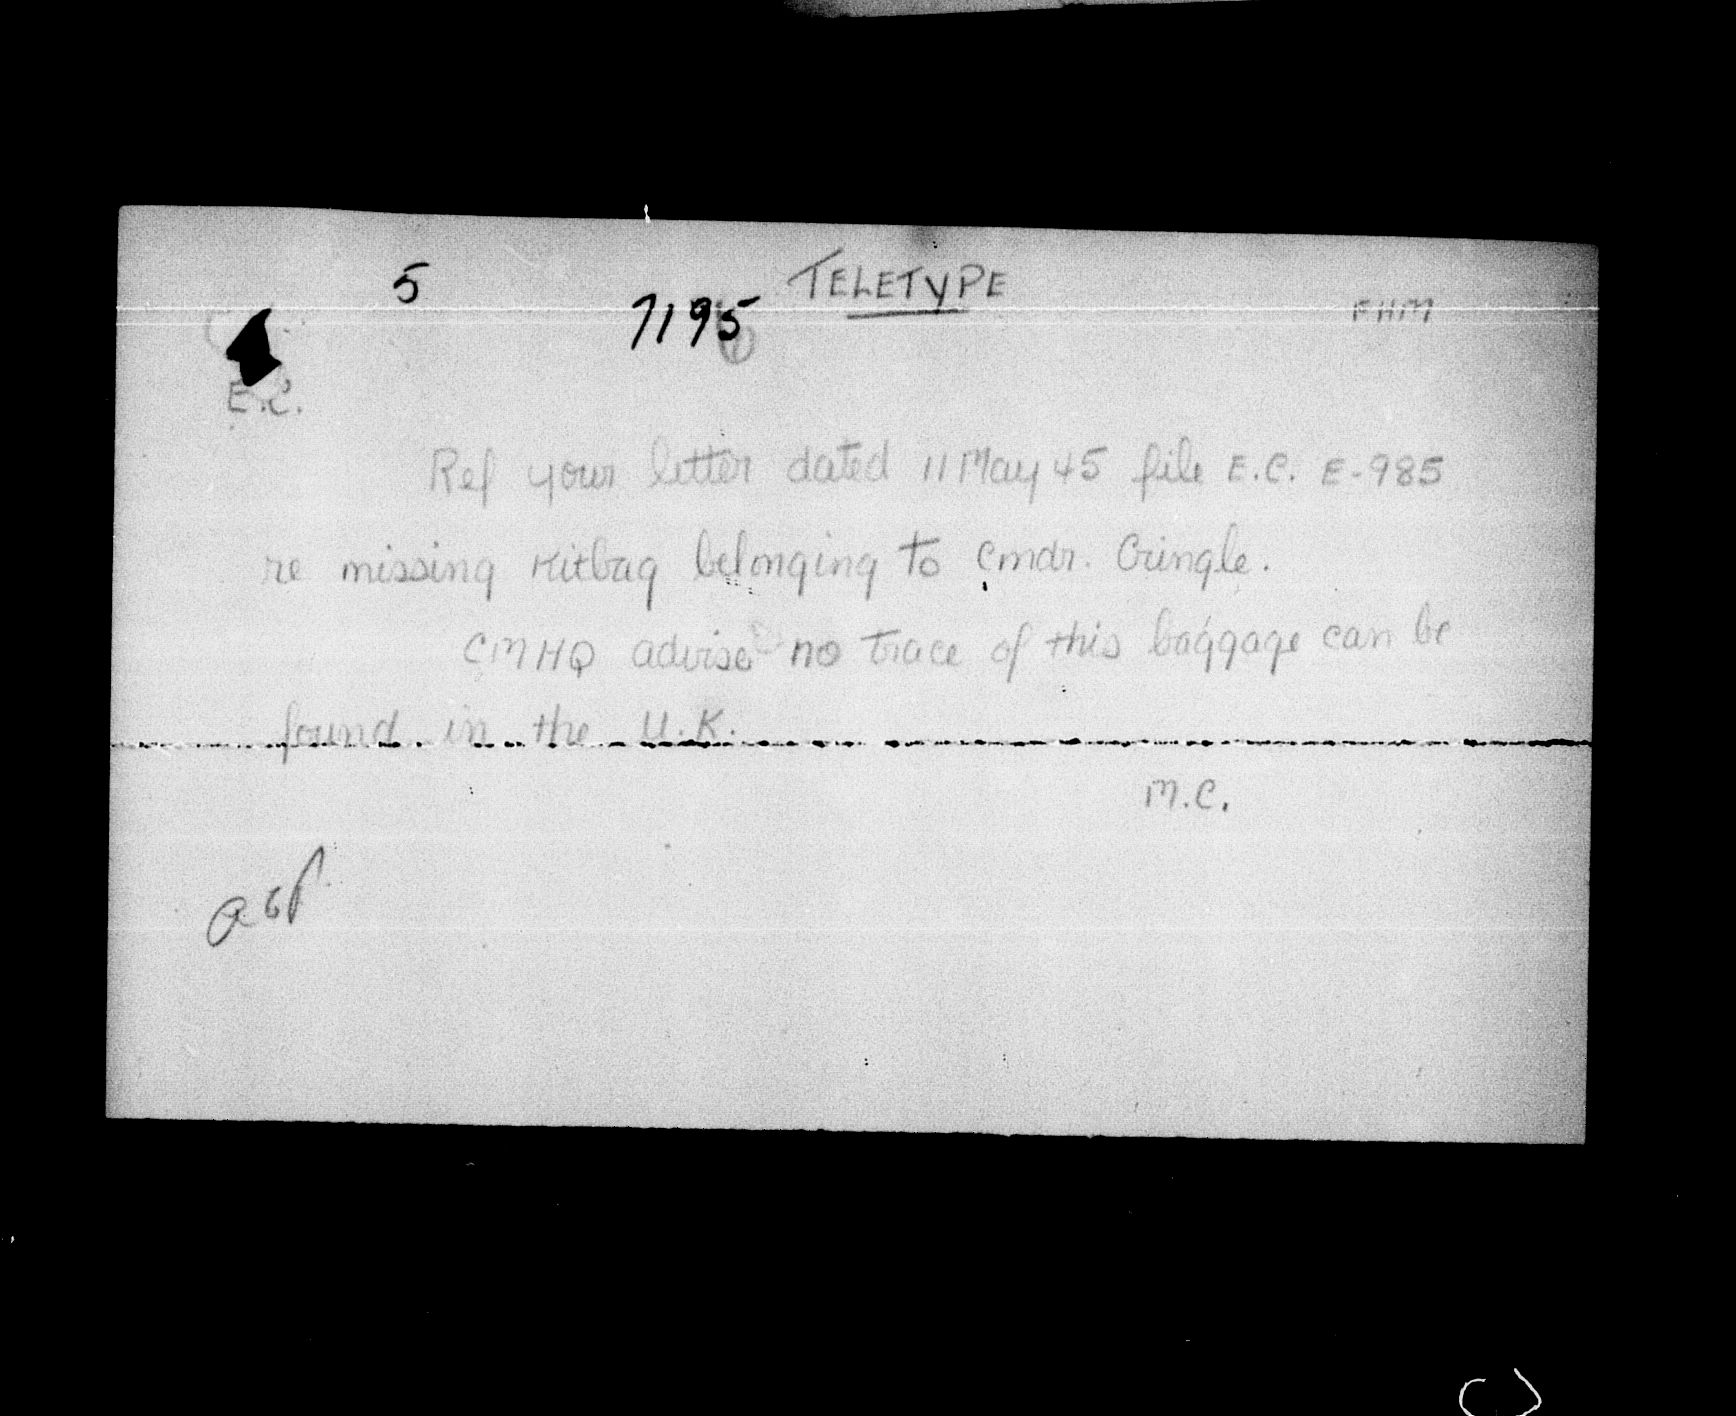 5
TELETYPE
7195
FHM
E.C.
Ref your letter dated 11 May 45 file E.C. E-985
re missing Kitbag belonging to Cmdr. Cringle.
CMHQ advise no trace of this baggage can be
found in the U.K.
M.C.